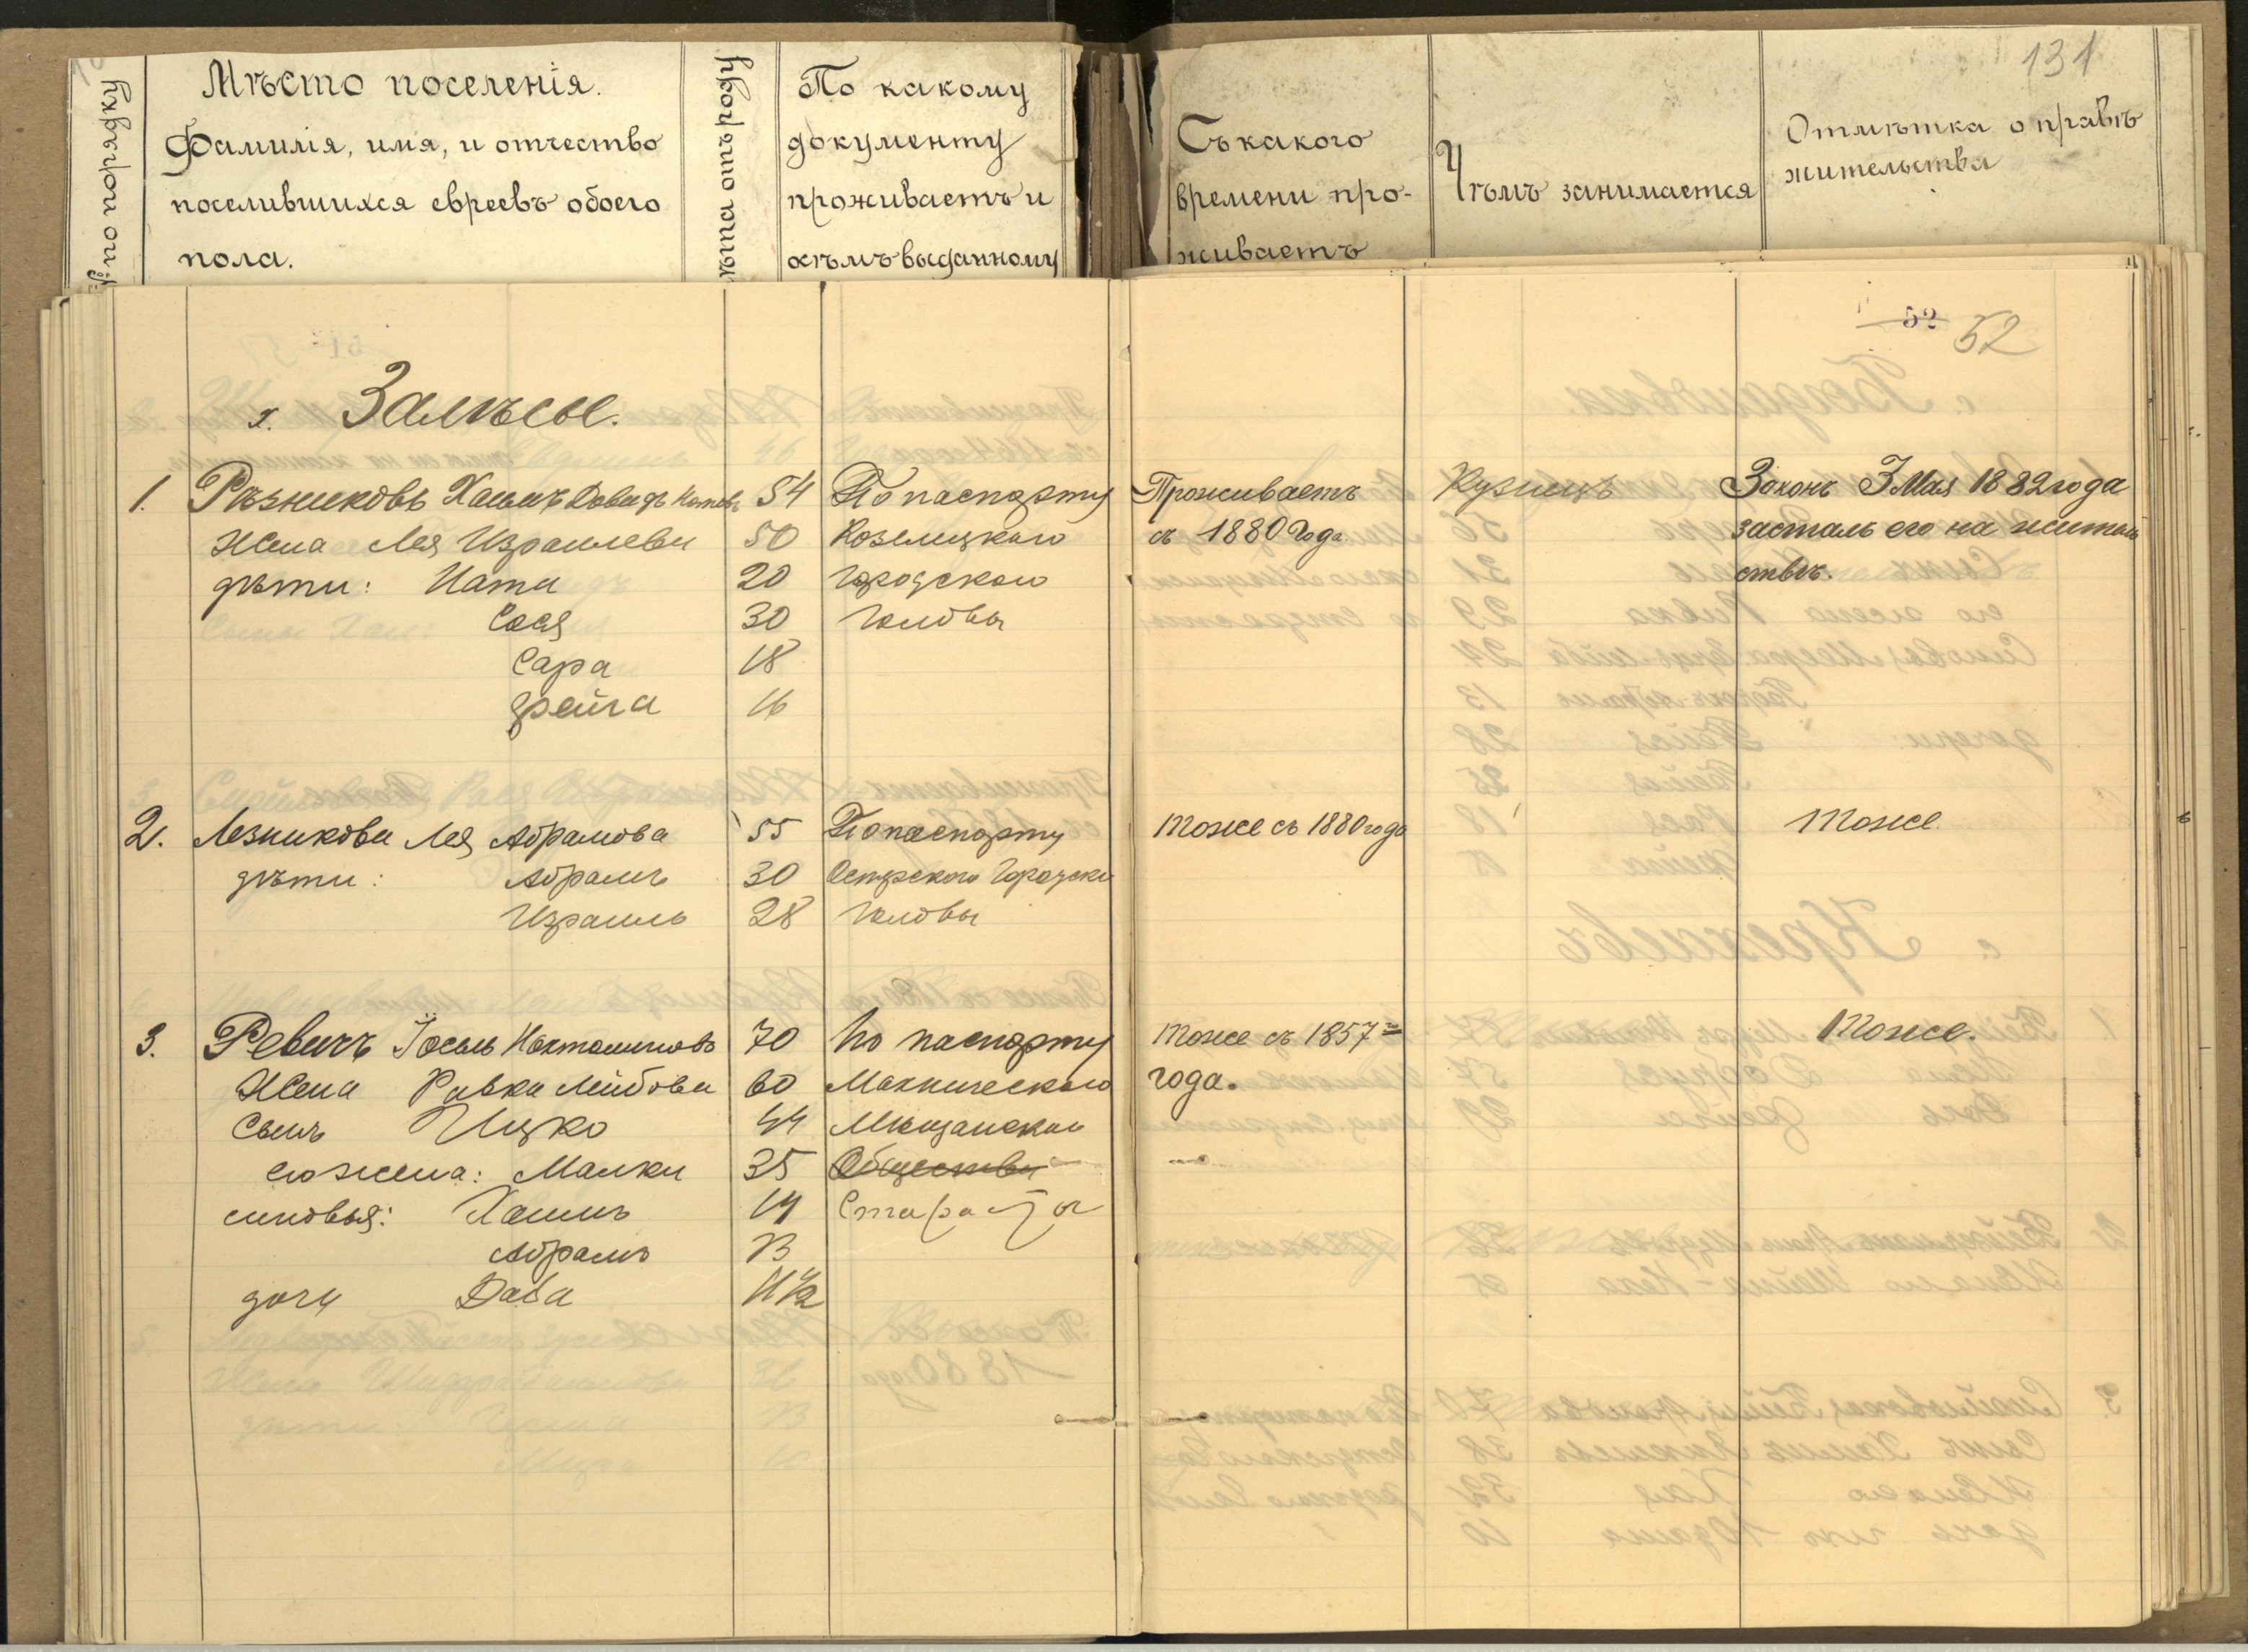 131
№ по порядку
Мѣсто поселенія.
Фамилія, имя, и отчество
поселившихся евреевъ обоего
пола.
лѣта отъ роду
По какому
документу
проживаетъ и
кѣмъ выданному
Съ какого
времени про-
живаетъ
Чѣмъ занимается
Отмѣтка о правѣ
жительства
52 52
х. Залѣсье.
1. Рѣзниковъ Хаимъ Довидъ 54 По паспорту Проживаетъ Кузнецъ Законъ 3 Мая 1882 года
Жена Лея Израилева 50 Козелецкаго съ 1880 года засталъ его на житель
дѣти: Ната 20 Городского ствѣ.
Сося 30 Головы
Сара 18
Фейга 16
2. Лезникова Лея Абрамова 55 По паспорту Тоже съ 1880 года Тоже.
дѣти: Абрамъ 30 Остерского Городска
Израиль 28 Головы
3. Ревичъ Іосель 70 По паспорту Тоже съ 1857 го Тоже.
Жена Ривка Лейбова 60 года.
Сынъ Ицко 44 Мѣщанскаго
его жена: Малка 35 Общества
сыновья: Хаимъ 14 Старосты
Абрамъ 13
дочь 11½